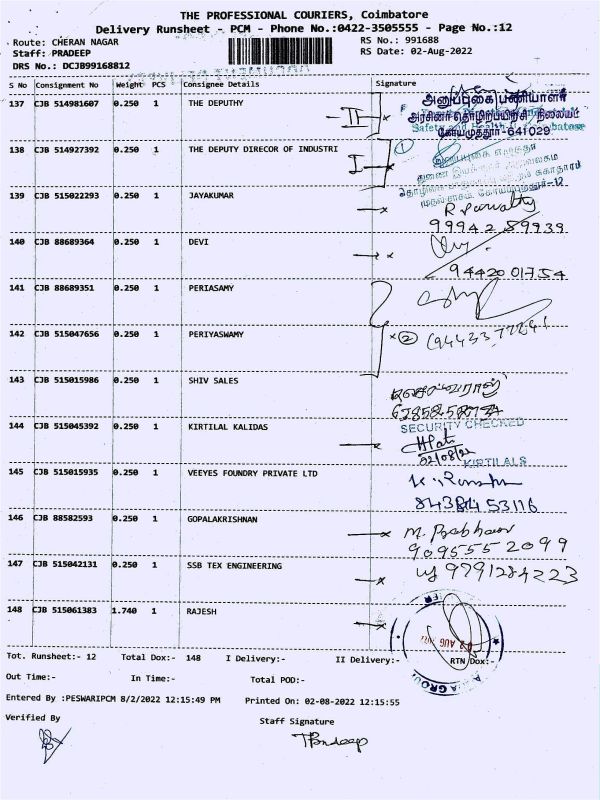 THE PROFESSIONAL COURIERS, Coimbatore
Delivery Runsheet - PCM - Phone No.:0422-3505555 - Page No.:12
Route: CHERAN NAGAR
RS No.: 991688
Staff: PRADEEP
RS Date: 02-Aug-2022
DRS No.: DCJB99168812
S No Consignment No Weight PCS Consignee Details Signature
137 CJB 514981607 0.250 1 THE DEPUTHY
அனுப்புகை பணியாளர்
அரசினர் தொழிற்பயிற்சி நிலையம்
கோயமுத்தூர்-641029
138 CJB 514927392 0.250 1 THE DEPUTY DIRECOR OF INDUSTRI
139 CJB 515022293 0.250 1 JAYAKUMAR
R. Parvathy
99942 89939
140 CJB 88689364 0.250 1 DEVI
94420 01754
141 CJB 88689351 0.250 1 PERIASAMY
142 CJB 515047656 0.250 1 PERIYASWAMY
2
143 CJB 515015986 0.250 1 SHIV SALES
144 CJB 515045392 0.250 1 KIRTILAL KALIDAS
SECURITY CHECKED
02/08/22
KIRTILALS
145 CJB 515015935 0.250 1 VEEYES FOUNDRY PRIVATE LTD
146 CJB 88582593 0.250 1 GOPALAKRISHNAN
9095552099
147 CJB 515042131 0.250 1 SSB TEX ENGINEERING
9791284223
148 CJB 515061383 1.740 1 RAJESH
Tot. Runsheet:- 12 Total Dox:- 148 I Delivery:- II Delivery:- RTN Dox:-
Out Time:- In Time:- Total POD:-
Entered By :PESWARIPCM 8/2/2022 12:15:49 PM Printed On: 02-08-2022 12:15:55
Verified By Staff Signature